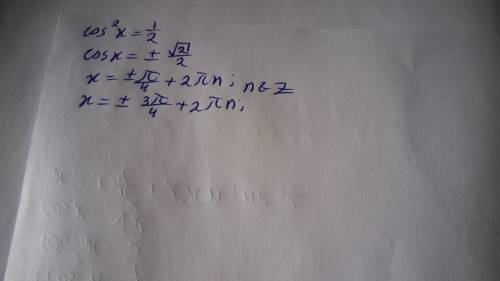 cos²x = 1/2
cosx = ± √2/2
x = ± π/4 + 2πn; n∈Z
x = ± 3π/4 + 2πn;